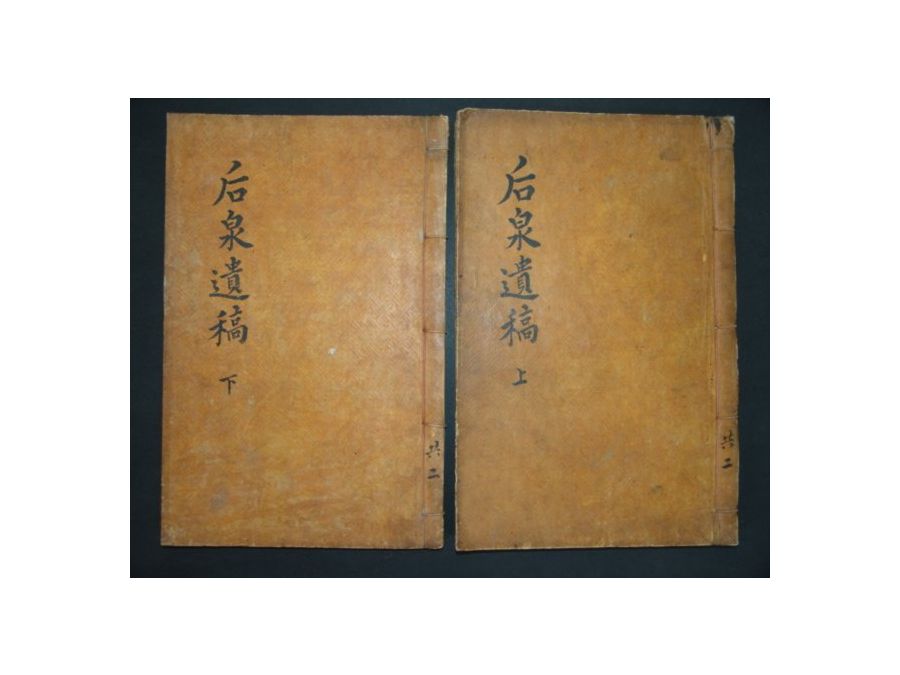 后泉遺稿 上
共二
后泉遺稿 下
共二